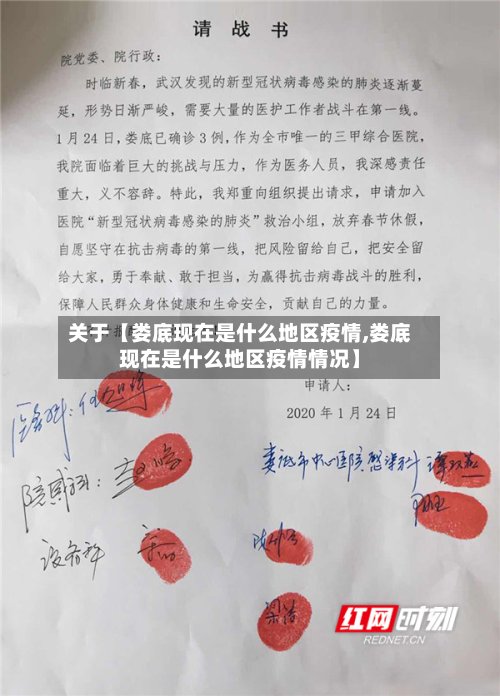 请 战 书
院党委、院行政：
时临新春，武汉发现的新型冠状病毒感染的肺炎逐渐蔓
延，形势日渐严峻，需要大量的医护工作者战斗在第一线。
1月24日，娄底已确诊3例，作为全市唯一的三甲综合医院，
我院面临着巨大的挑战与压力，作为医务人员，我深感责任
重大，义不容辞。特此，我郑重向组织提出请求，申请加入
医院“新型冠状病毒感染的肺炎”救治小组，放弃春节休假，
自愿坚守在抗击病毒的第一线，把风险留给自己，把安全留
给大家，勇于奉献、敢于担当，为赢得抗击病毒战斗的胜利，
保障人民群众身体健康和生命安全，贡献自己的力量。
关于【娄底现在是什么地区疫情,娄底
现在是什么地区疫情情况】
申请人：
2020年1月24日
娄底市中心医院感染科
院感科：
设备科
红网时刻
REDNET.CN